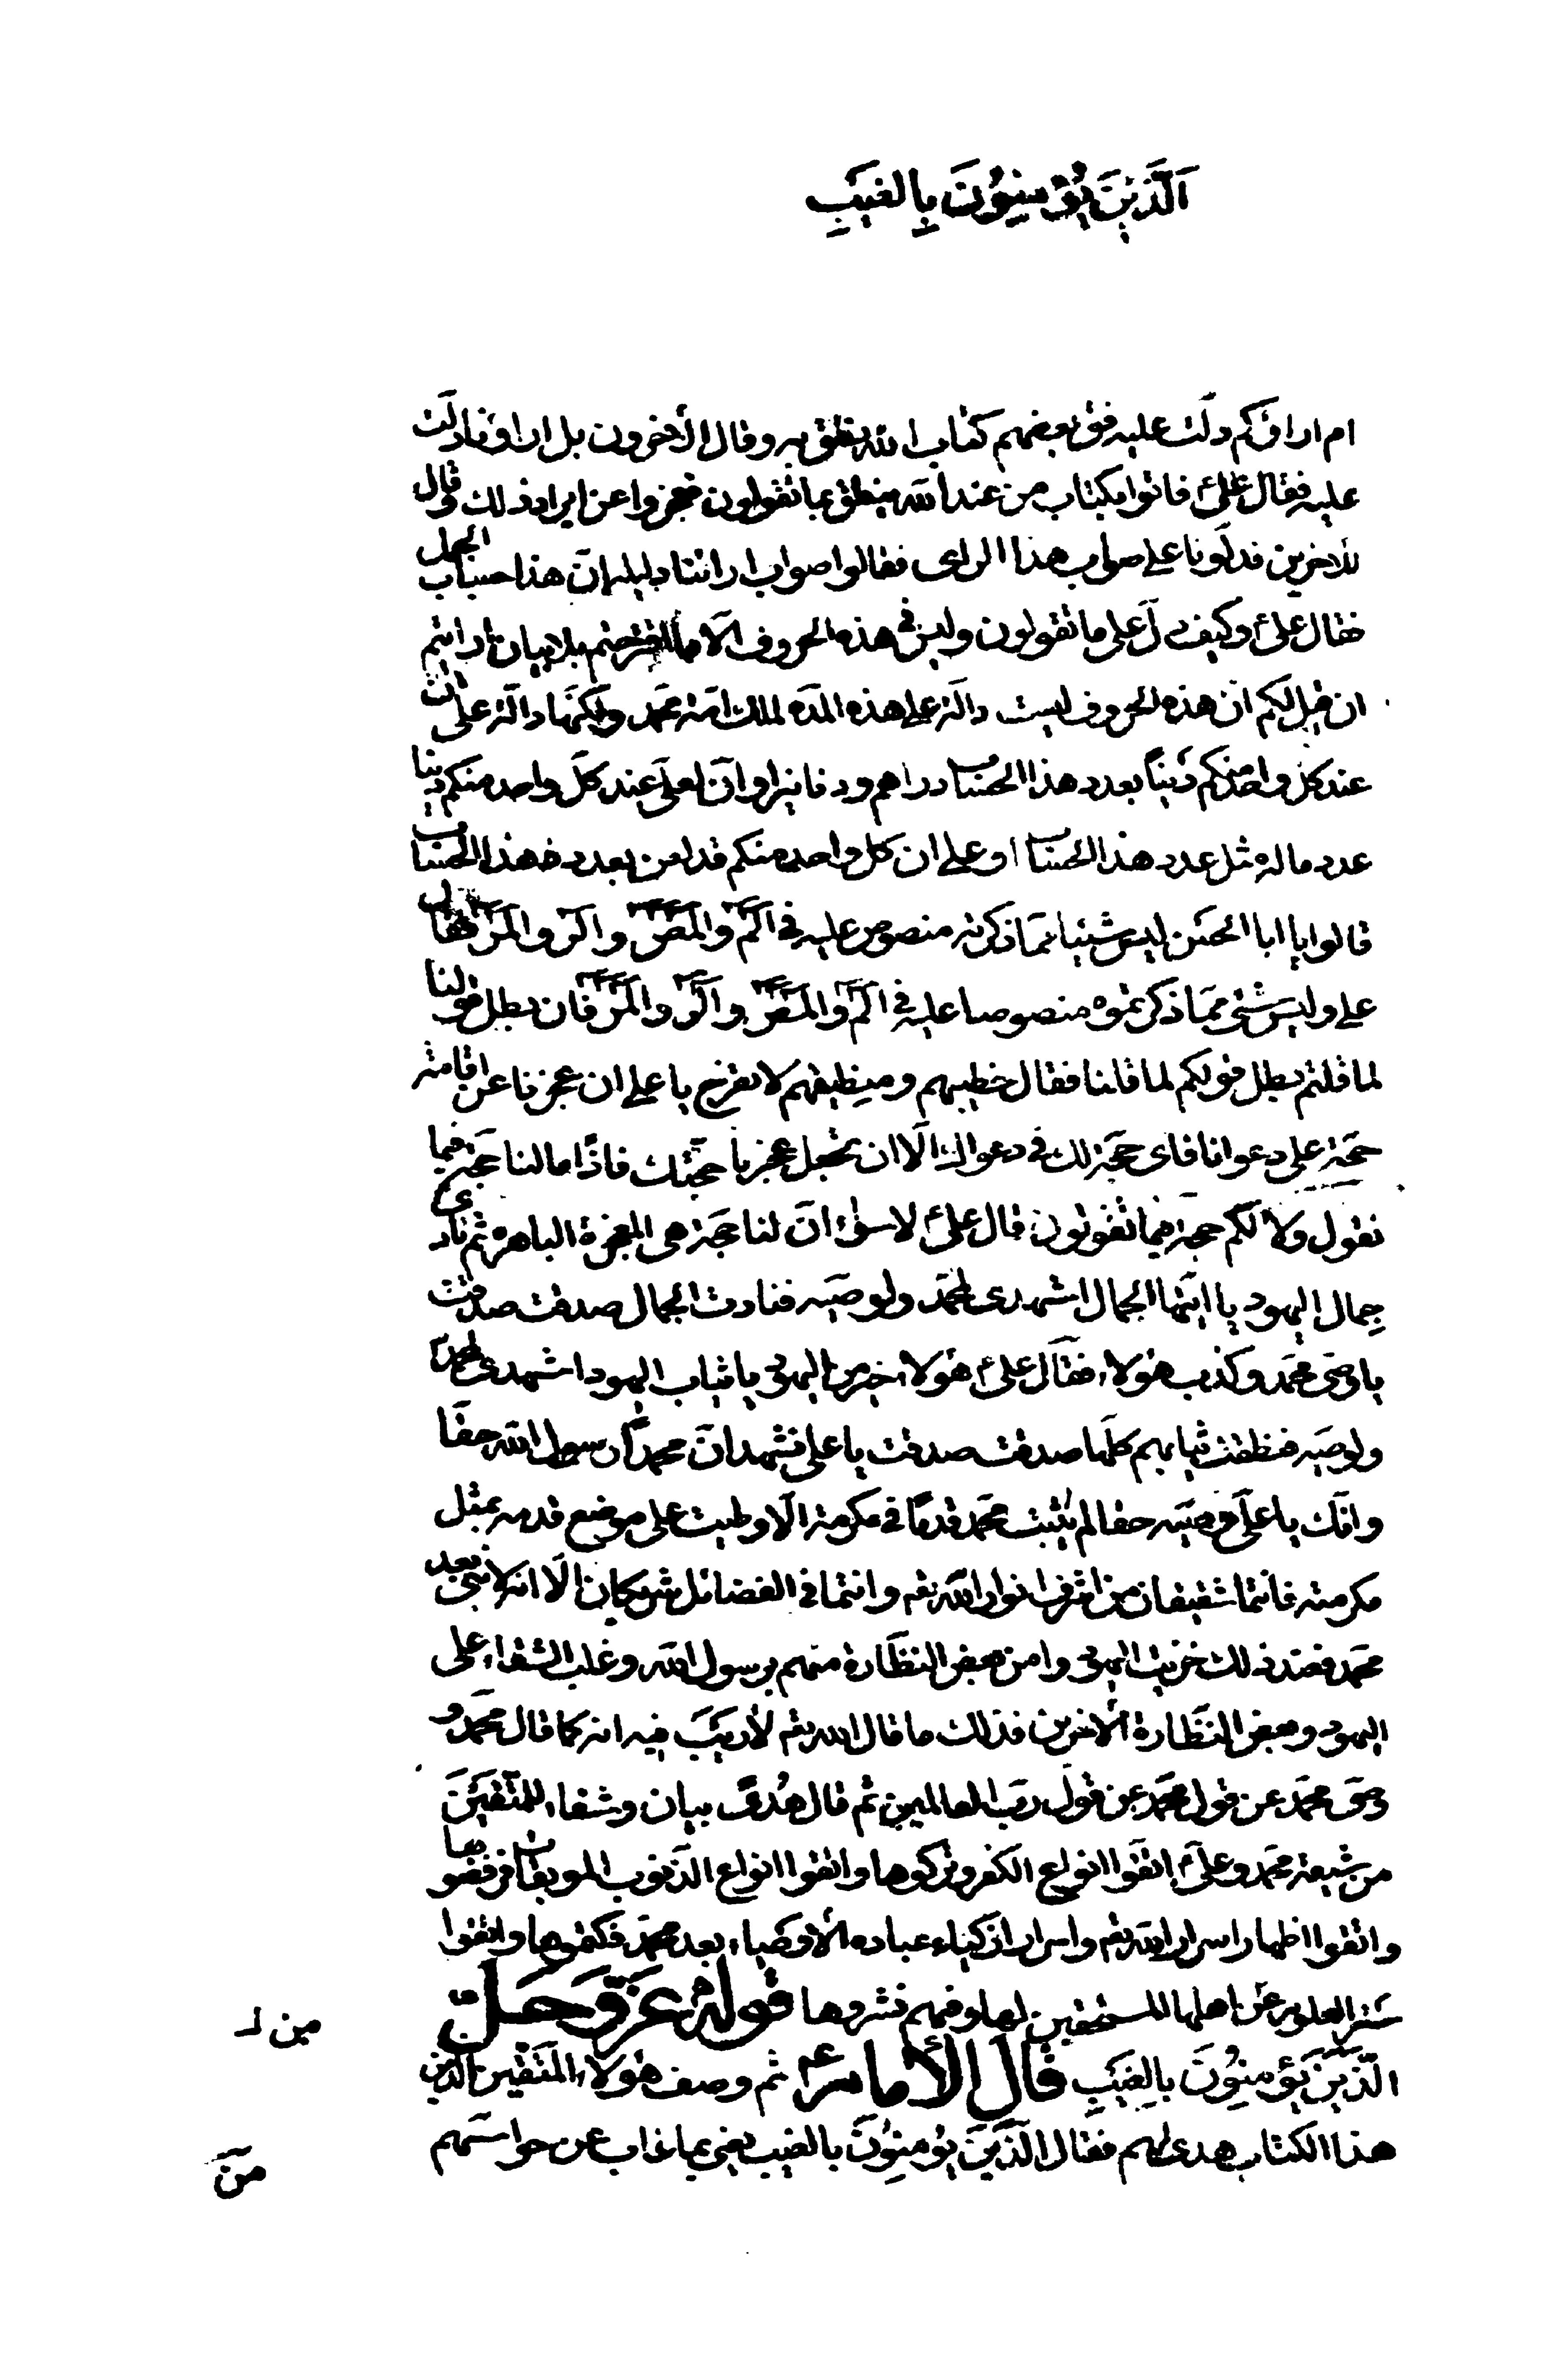 اَلَّذِينَ يُؤْمِنُونَ بِالْغَيْبِ
ام اراؤكم دلّت عليه فق بعضهم كتاب الله نطق به وقال الآخرون بل اراؤنا دلّت
عليه فقال علىّ فاتوا بكتاب من عند الله ينطق بما تقولون فعجزوا عن ايراد ذلك وقال
للأخرين فدلّونا على صواب هذا الراى فقالوا صواب راينا دليله انّ هذا حساب الجمل
فقال علىّ وكيف دلّ على ما تقولون وليس فى هذه الحروف الّا ما اقترحتم بلا بيان ارايتم
ان قيل لكم انّ هذه الحروف ليست دالّة على هذه المدّه لملك امّة محمّد ولكنّها دالّة على انّ
عند كلّ واحد منكم دَيناً بعدد هذا الحساب دراهم ودنانير او انّ لعلىّ عند كلّ واحد منكم دينا
عدد ماله مثل عدد هذا الحساب او على ان كل واحد منكم قد لعن بعدد هذا الحساب
قالوا يا ابا الحسن ليس شيئا ممّا ذكرته منصوص عليه فى الٓمٓ والٓمٓصٓ والٓرٓ والٓمٓرٓ فقال
على وليس شىء ممّا ذكرتموه منصوصا عليه فى الٓمٓ والٓمٓصٓ والٓرٓ والٓمٓرٓ فان بطل قولنا
لما قلتم بطل قولكم لما قلنا فقال خطيبهم ومنطيقهم لا تفرح يا على ان عجزنا عن اقامة
حجّة على دعوانا فاى حجّة لك فى دعواك الّا ان تجعل عجزنا حجّتك فاذًا ما لنا حجّة فيما
نقول ولا لكم حجّة فيما تقولون قال علىّ لا سواء انّ لنا حجّة هى المعجزة الباهرة ثم نادى
جمال اليهود يا ايّتها الجمال اشهدى لمحمّد ولوصيّه فنادت الجمال صدقت صدقت
يا وصىّ محمّد وكذب هؤلاء فقال علىّ هؤلاء خير من اليهود يا ثياب اليهود اشهدى لمحمّد
ولوصيّه فنطقت ثيابهم كلّها صدقت صدقت يا على نشهد انّ محمّداً رسول الله حقّا
وانّك يا علىّ وصيّه حقا لم يثبت محمّد قدمًا فى مكرمة الّا وطيت على موضع قدمه بمثل
مكرمته فانتما شقيقان من اشرف انوار الله تعم وانتما فى الفضائل شريكان الّا انه لا نبى بعد
محمّد فعند ذلك خزيت اليهود وامن بعض النظّارة منهم برسول الله وغلب الشقاء على
اليهود وبعض النظّارة الآخرين فذلك ما قال الله تعم لاَ رَيْبَ فيه انه كما قال محمّد و
وصىّ محمّد عن قول محمّد عن قول ربّ العالمين ثم قال هُدىً بيان وشفاء للمتّقِيْنَ
من شيعة محمّد وعلىّ اتّقوا انواع الكفر وتركوها واتقوا انواع الذّنوب الموبقات فرفضوها
واتقوا اظهار اسرار الله تعم واسرار ازكياء عباده الأوصياء بعد محمّد فكتموها واتّقوا
ستر العلوم عن اهلها المستحقين لها وفيهم نشروها قولهُ عزّ وجلّ
الّذِيْنَ يُؤْمِنُونَ بالغيْبِ قال الأمامُ ثم وصف هؤلاء المتّقين الذين
هذا الكتاب هدى لهم فقال الَّذِيْنَ يُؤمِنُونَ بالغيب يعنى بما غاب عن حواسّهم
من لـ
منَ